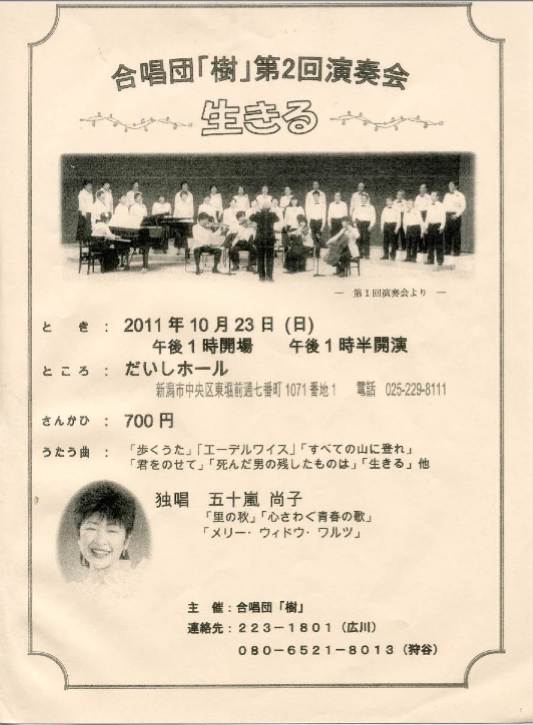 合唱団「樹」第2回演奏会
生きる
― 第1回演奏会より ―
と き : 2011年10月23日 (日)
午後1時開場 午後1時半開演
ところ : だいしホール
新潟市中央区東堀前通七番町1071番地1 電話 025-229-8111
さんかひ : 700円
うたう曲 : 「歩くうた」「エーデルワイス」「すべての山に登れ」
「君をのせて」「死んだ男の残したものは」「生きる」他
独唱 五十嵐 尚子
「里の秋」「心さわぐ青春の歌」
「メリー・ウィドウ・ワルツ」
主 催:合唱団「樹」
連絡先:223-1801(広川)
080-6521-8013(狩谷)